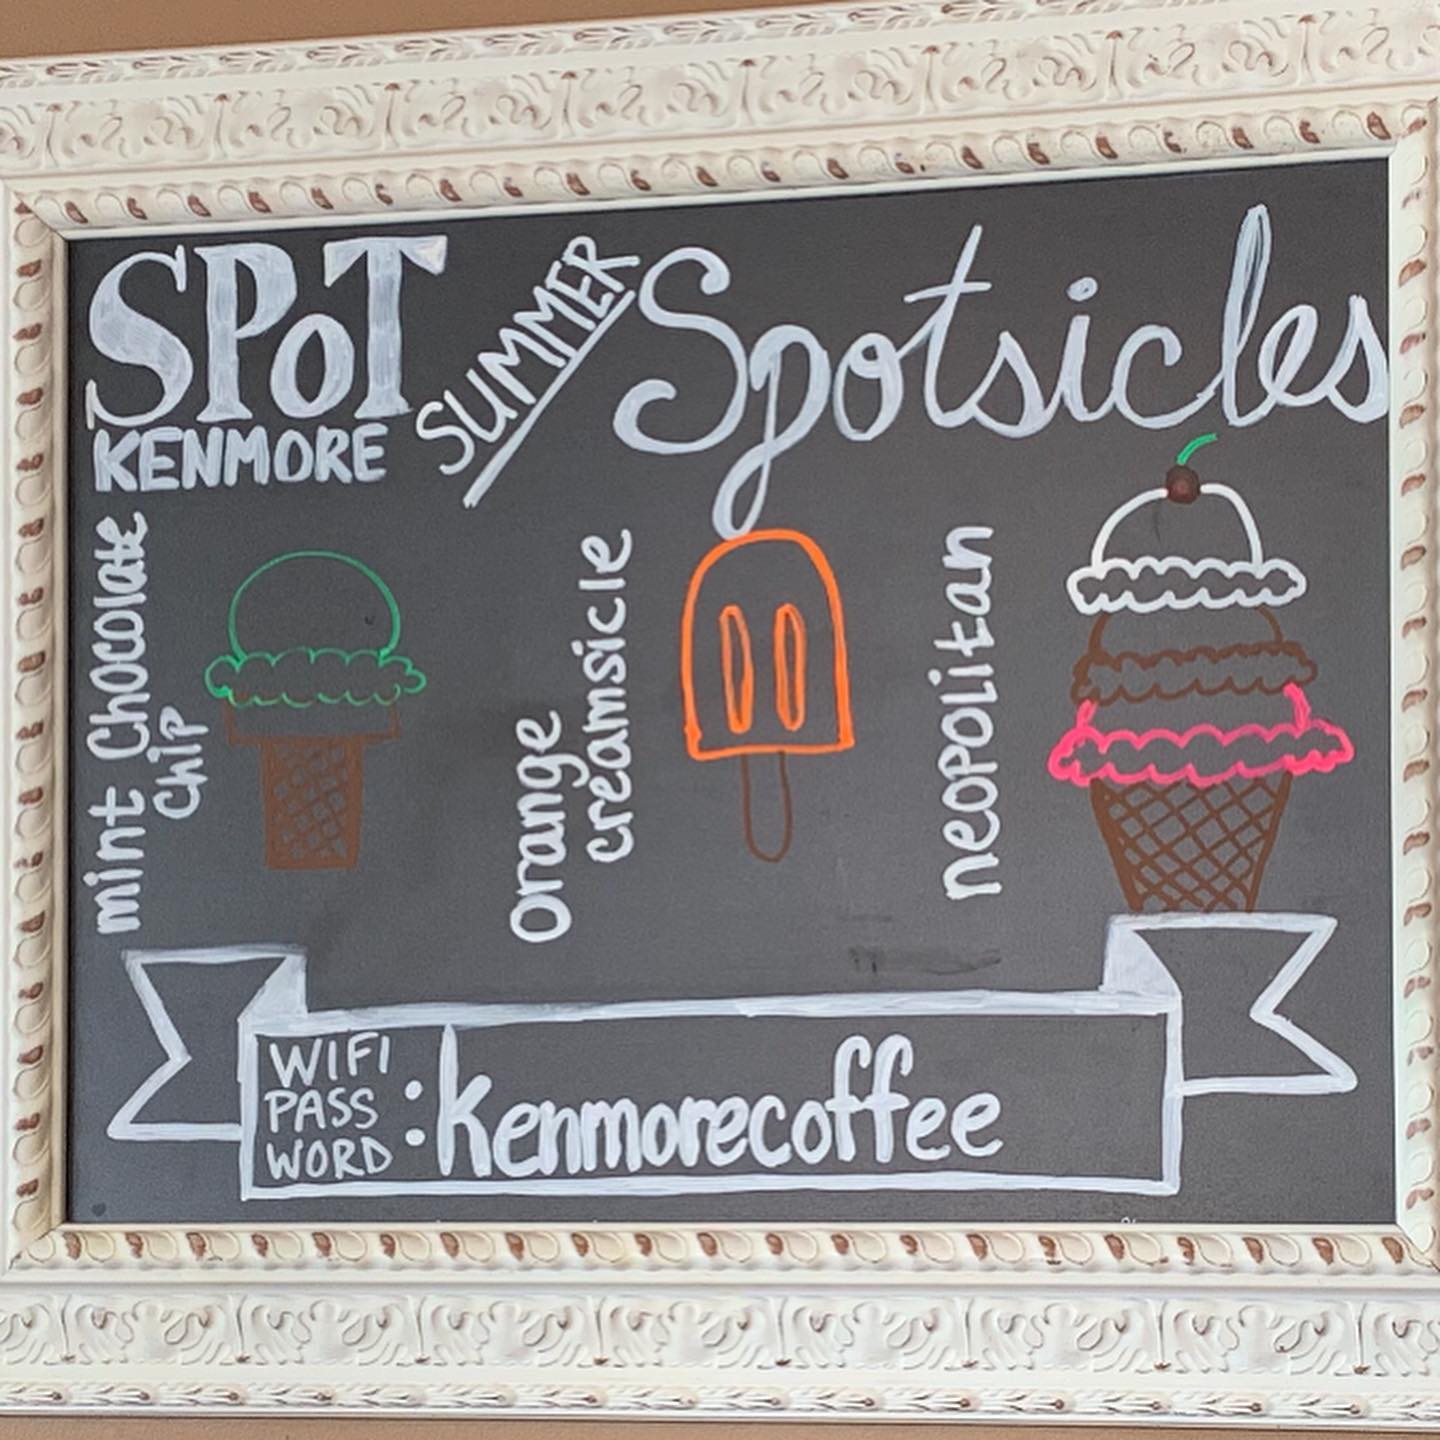 SPoT
KENMORE
SUMMER
Spotsicles
mint Chocolate
Chip
orange
creamsicle
neopolitan
WIFI
PASS
WORD
: kenmorecoffee